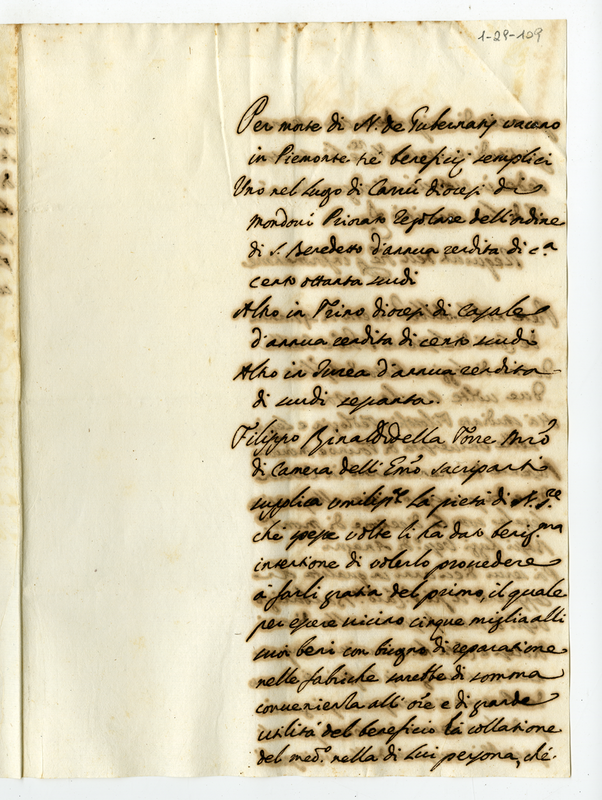 1-29-109
Per morte di N. de Gubernatis vacano
in Piemonte tré beneficij semplici
Uno nel luogo di Carrú diocesi di
Mondoví Priorato regolare dell'ordine
di S. Benedetto d'annua rendita di c.a
cento ottanta scudi
Altro in Trino diocesi di Casale
d'annua rendita di cento scudi
Altro in Ivrea d'annua rendita
di scudi settanta.
Filippo Rinaldi della Torre
di Camera dell' Emo Sacripanti
supplica la pietá di N. Sre
che spesse volte li há dato benig.ma
intentione di volerlo provedere
á farli gratia del primo, il quale
per essere vicino cinque miglia alli
suoi beni con bisogno di reparatione
nelle fabriche sarebbe di somma
convenienza all' ore e di grande
utilitá del beneficio la collatione
del med.o nella di lui persona, ché